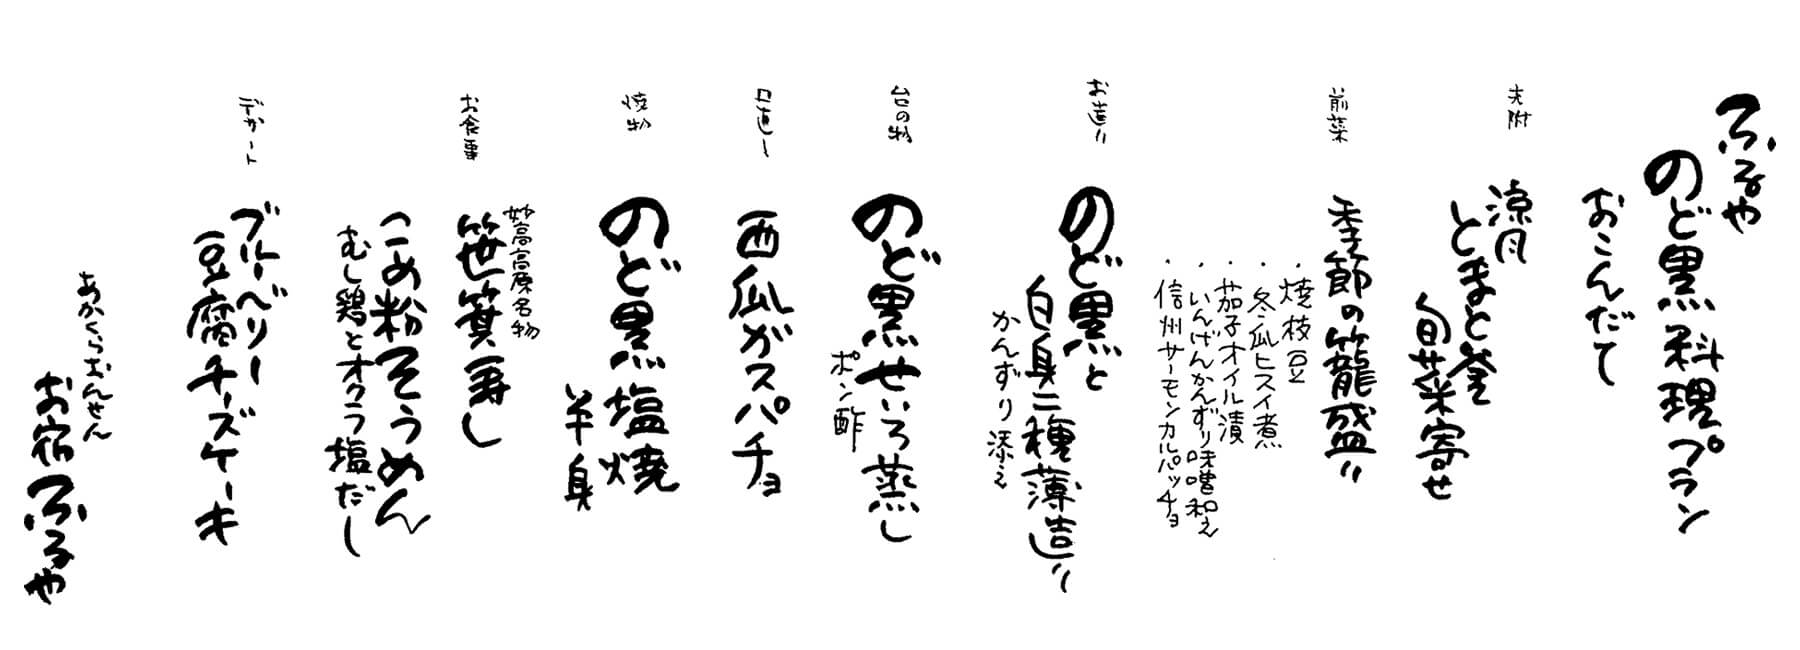 ふるや
のど黒料理プラン
おこんだて
先附
涼月
とまと釜
旬菜寄せ
前菜
季節の籠盛り
・焼枝豆
・冬瓜ヒスイ煮
・茄子オイル漬
・いんげんかんずり味噌和え
・信州サーモンカルパッチョ
お造り
のど黒と
白身二種薄造り
かんずり添え
台の物
のど黒せいろ蒸し
ポン酢
口直し
西瓜ガスパチョ
焼物
のど黒塩焼
半身
お食事
妙高高原名物
笹箕寿し
こめ粉そうめん
むし鶏とオクラ塩だし
デザート
ブルーベリー
豆腐チーズケーキ
あかくらおんせん
お宿ふるや